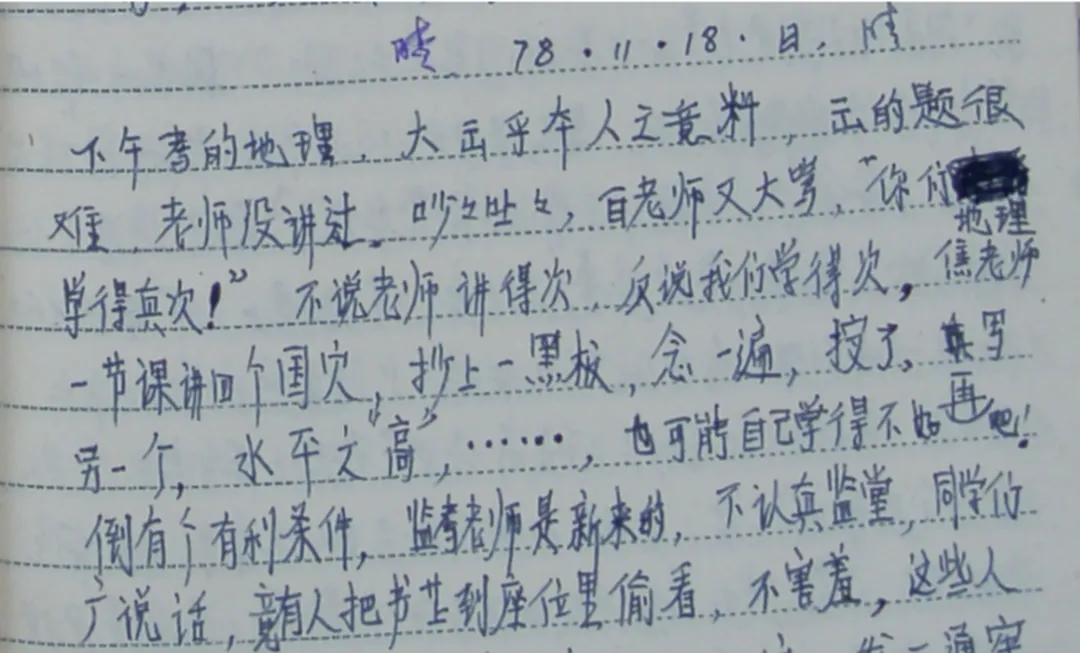 晴 78·11·18·日. 晴
下午考的地理，大出乎本人之意料，出的题很
难，老师没讲过。吵吵吐吐，自老师又大骂，“你们
地理
学得真次！” 不说老师讲得次，反说我们学得次，焦老师
一节课讲四个国穴，抄上一黑板，念一遍，按了，写
再
另一个，水平之“高”，……，也可能自己学得不好吧！
倒有个有利条件，监考老师是新来的，不认真监堂，同学们
广说话，竟有人把书芷到座位里偷看，不害羞，这些人
一通窜